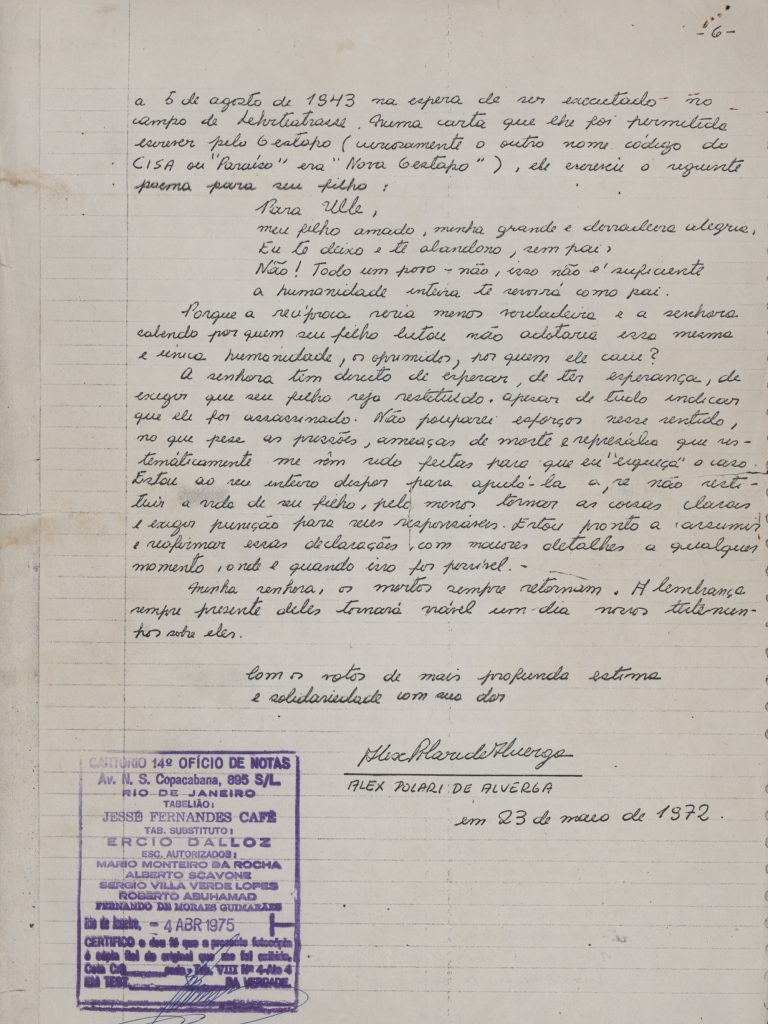 -6-
a 5 de agosto de 1943 na espera de ser executado no
campo de Lehrteatrasse. Numa carta que lhe foi permitida
escrever pelo Gestapo (curiosamente o outro nome código do
CISA ou "Paraíso" era "Nova Gestapo"), ele escreveu o seguinte
poema para seu filho:
Para Ulle,
meu filho amado, minha grande e derradeira alegria,
Eu te deixo e te abandono, sem pai,
Não! Todo um povo - não, isso não é suficiente
a humanidade inteira te servirá como pai.
Porque a recíproca seria menos verdadeira e a senhora
sabendo por quem seu filho lutou não adotaria essa mesma
e única humanidade, os oprimidos, por quem ele caiu?
A senhora tem direito de esperar, de ter esperança, de
exigir que seu filho seja restituido. apesar de tudo indicar
que ele foi assassinado. Não pouparei esforços nesse sentido,
no que pese as pressões, ameaças de morte e represália que sis-
temáticamente me vêm sido feitas para que eu "esqueça" o caso.
Estou ao seu inteiro dispor para ajudá-la a, se não resti-
tuir a vida de seu filho, pelo menos tornar as coisas claras
e exigir punição para seus responsáveis. Estou pronto a assumir
e reafirmar essas declarações, com maiores detalhes a qualquer
momento, onde e quando isso for possível. -
Minha senhora, os mortos sempre retornam. A lembrança
sempre presente deles tornará viável um dia nossos testemu-
nhos sobre eles.
Com os votos de mais profunda estima
e solidariedade com sua dor
Alex Polari de Alverga
ALEX POLARI DE ALVERGA
em 23 de maio de 1972.
CARTÓRIO 14º OFÍCIO DE NOTAS
Av. N. S. Copacabana, 895 S/L.
RIO DE JANEIRO
TABELIÃO:
JESSÉ FERNANDES CAFÉ
TAB. SUBSTITUTO:
ERCIO DALLOZ
ESC. AUTORIZADOS:
MARIO MONTEIRO DA ROCHA
ALBERTO SCAVONE
SERGIO VILLA VERDE LOPES
ROBERTO ABUHAMAD
FERNANDO DE MORAES GUIMARÃES
Rio de Janeiro, - 4 ABR 1975
CERTIFICO e dou fé que a presente fotocópia
é cópia fiel do original que me foi exibido.
Tab. VIII Nº 4-Ato 4
EM TEST. DA VERDADE.